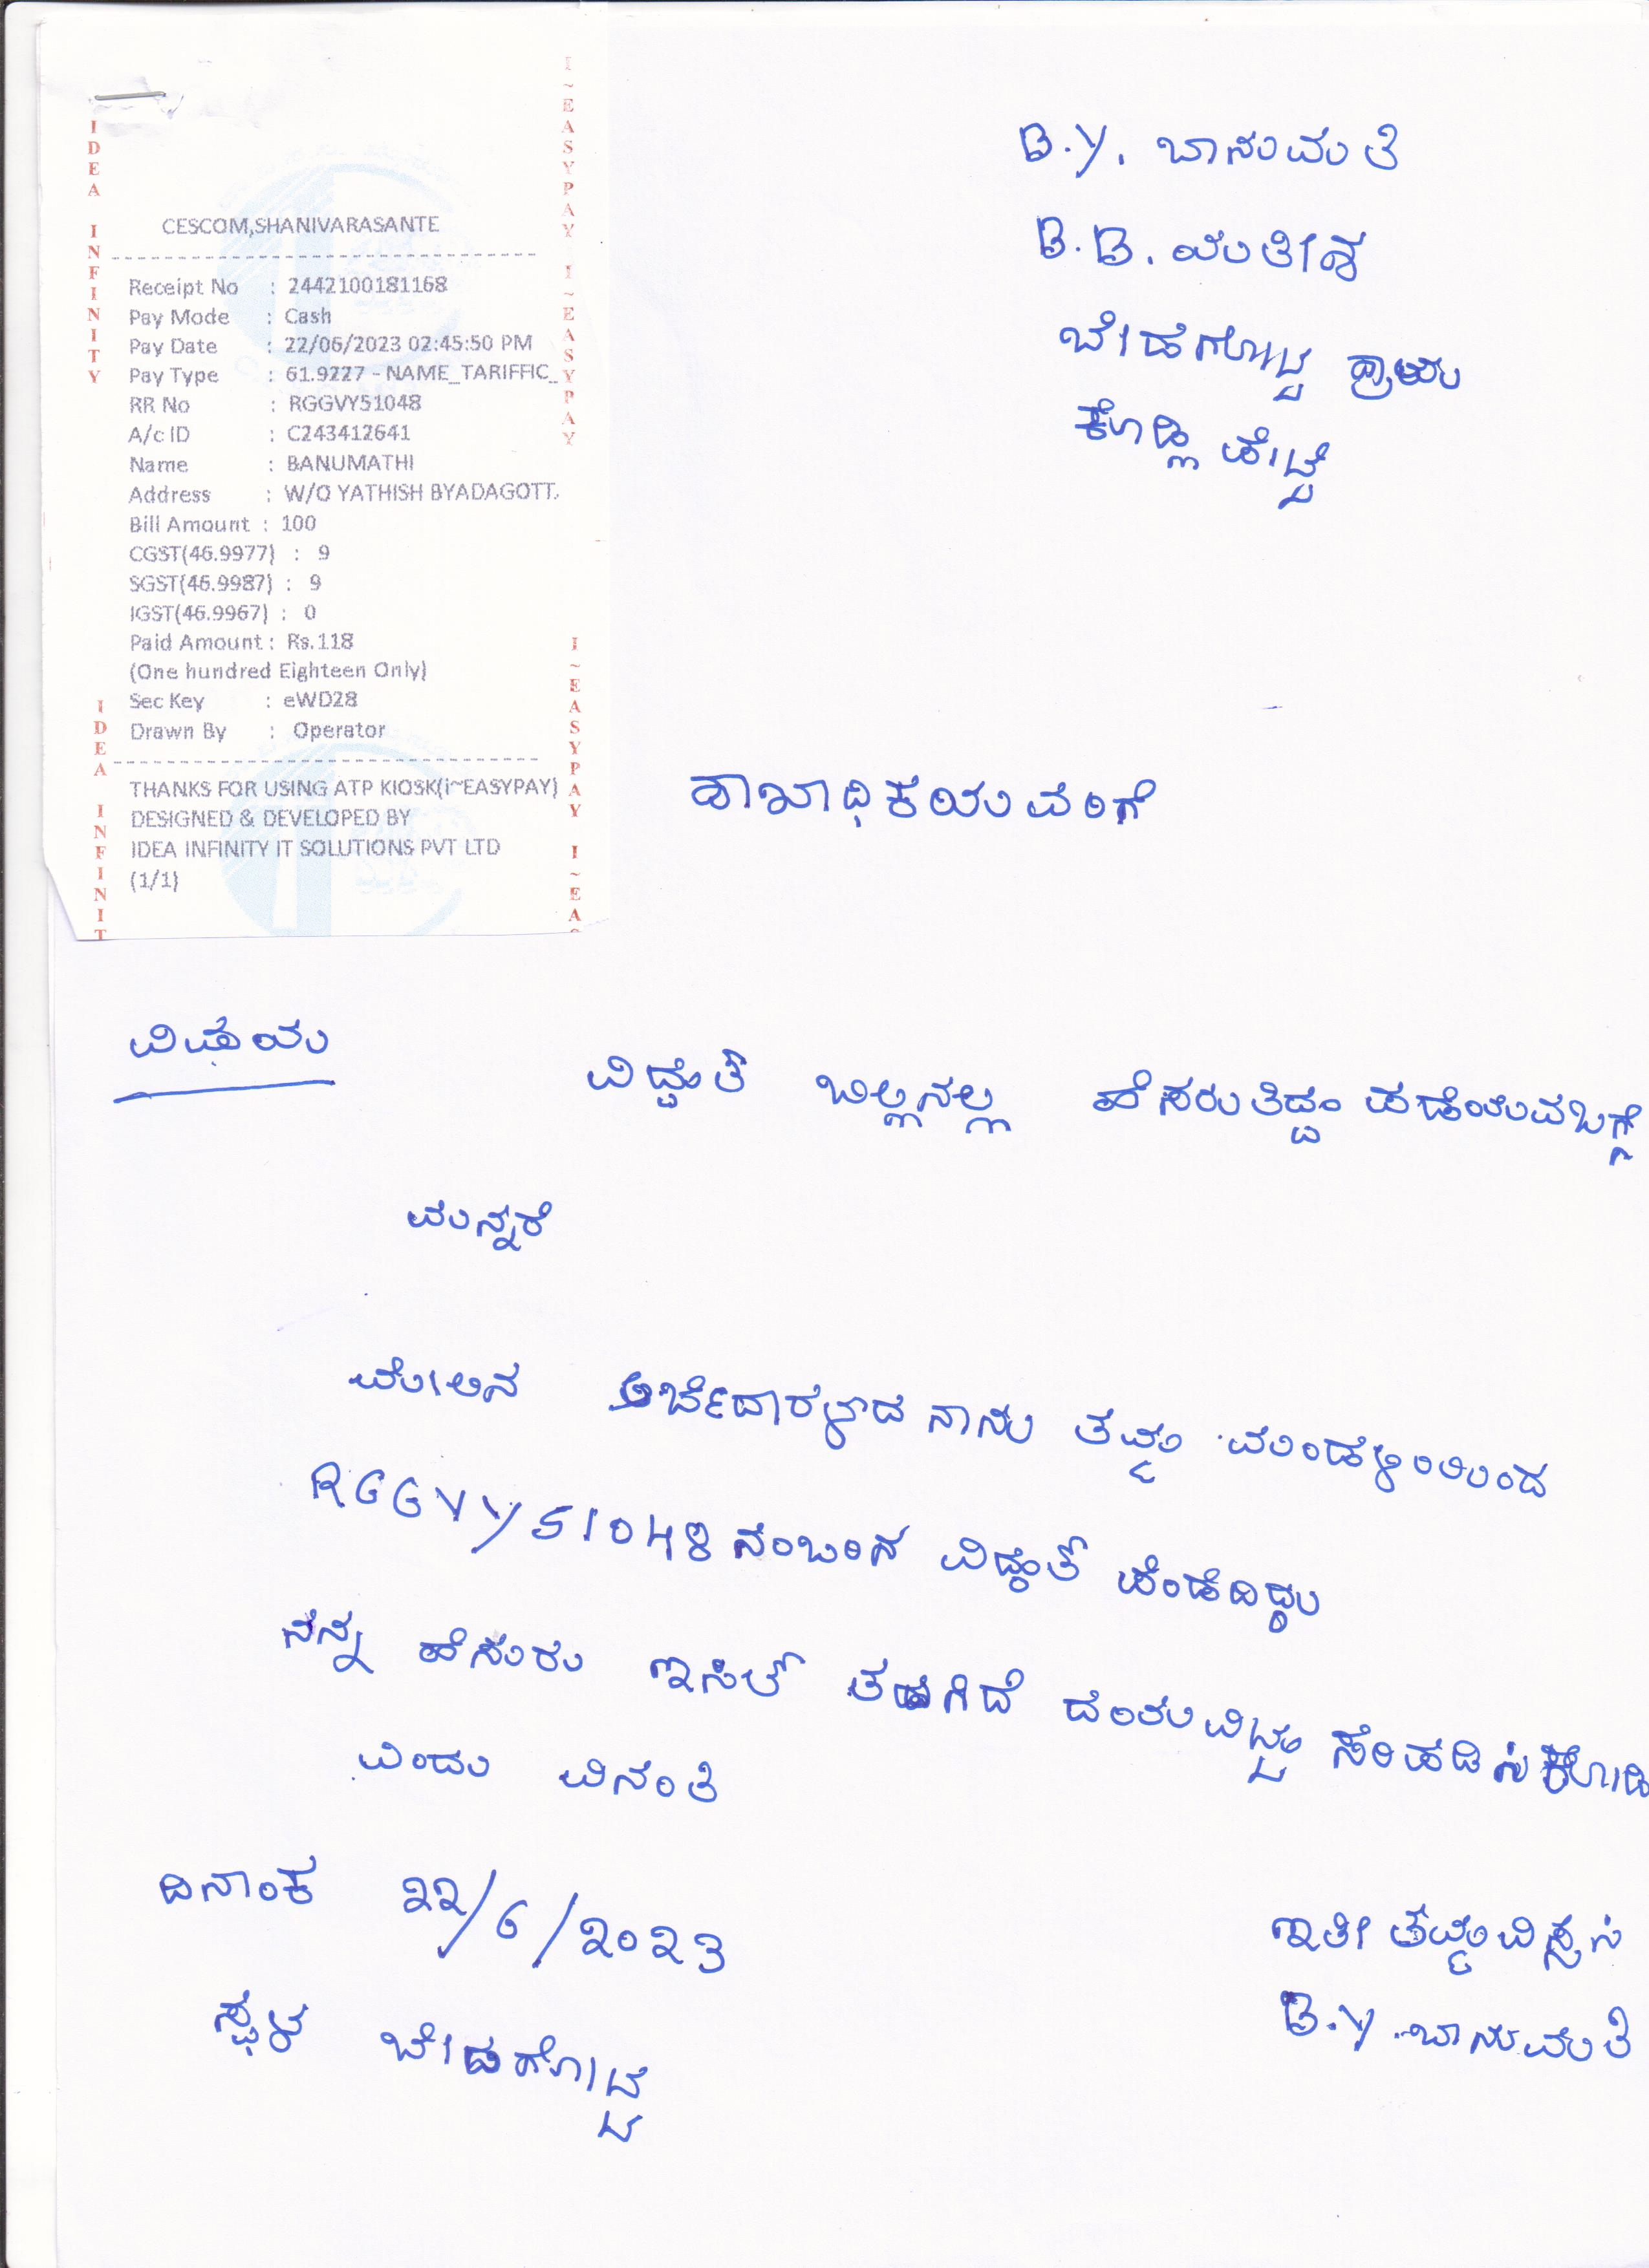 CESCOM,SHANIVARASANTE
Receipt No : 2442100181168
Pay Mode : Cash
Pay Date : 22/06/2023 02:45:50 PM
Pay Type : 61.9227 - NAME_TARIFFIC_
RR No : RGGVY51048
A/c ID : C243412641
Name : BANUMATHI
Address : W/O YATHISH BYADAGOTT
Bill Amount : 100
CGST(46.9977) : 9
SGST(46.9987) : 9
IGST(46.9967) : 0
Paid Amount : Rs.118
(One hundred Eighteen Only)
Sec Key : eWD28
Drawn By : Operator
THANKS FOR USING ATP KIOSK(i~EASYPAY)
DESIGNED & DEVELOPED BY
IDEA INFINITY IT SOLUTIONS PVT LTD
(1/1)
IDEA INFINITY
I~EASYPAY I~EASYPAY
IDEA INFINIT
I~EASYPAY I~EA
B.Y. ಬಾನುಮತಿ
B.B. ಯತೀಶ
ಬೇಡಗೊಟ್ಟ ಗ್ರಾಮ
ಕೊಡ್ಲಿ ಪೇಟೆ
ಶಾಖಾಧಿಕಯವರಿಗೆ
ವಿಷಯ
ವಿದ್ಯುತ್ ಬಿಲ್ಲನಲ್ಲಿ ಹೆಸರು ತಿದ್ದು ಪಡೆಯುವ ಬಗ್ಗೆ
ಮನ್ನರೆ
ಮೇಲಿನ ಅರ್ಜಿದಾರಳಾದ ನಾನು ತಮ್ಮ ಮಂಡಳಿಯಿಂದ
RGGVY51048 ನಂಬರಿನ ವಿದ್ಯುತ್ ಪಂಡೆದಿದ್ದು
ನನ್ನ ಹೆಸರು ಇಸಿಲ್ ತಪ್ಪಾಗಿದೆ ದಯವಿಟ್ಟು ಸರಿಪಡಿಸಿಕೊಡಿ
ಎಂದು ವಿನಂತಿ
ದಿನಾಂಕ 22/6/2023
ಇತೀ ತಮ್ಮವಿಸ್ವಸಿ
ಸ್ಥಳ ಬೇಡಗೊಟ್ಟ
B.Y. ಬಾನುಮತಿ